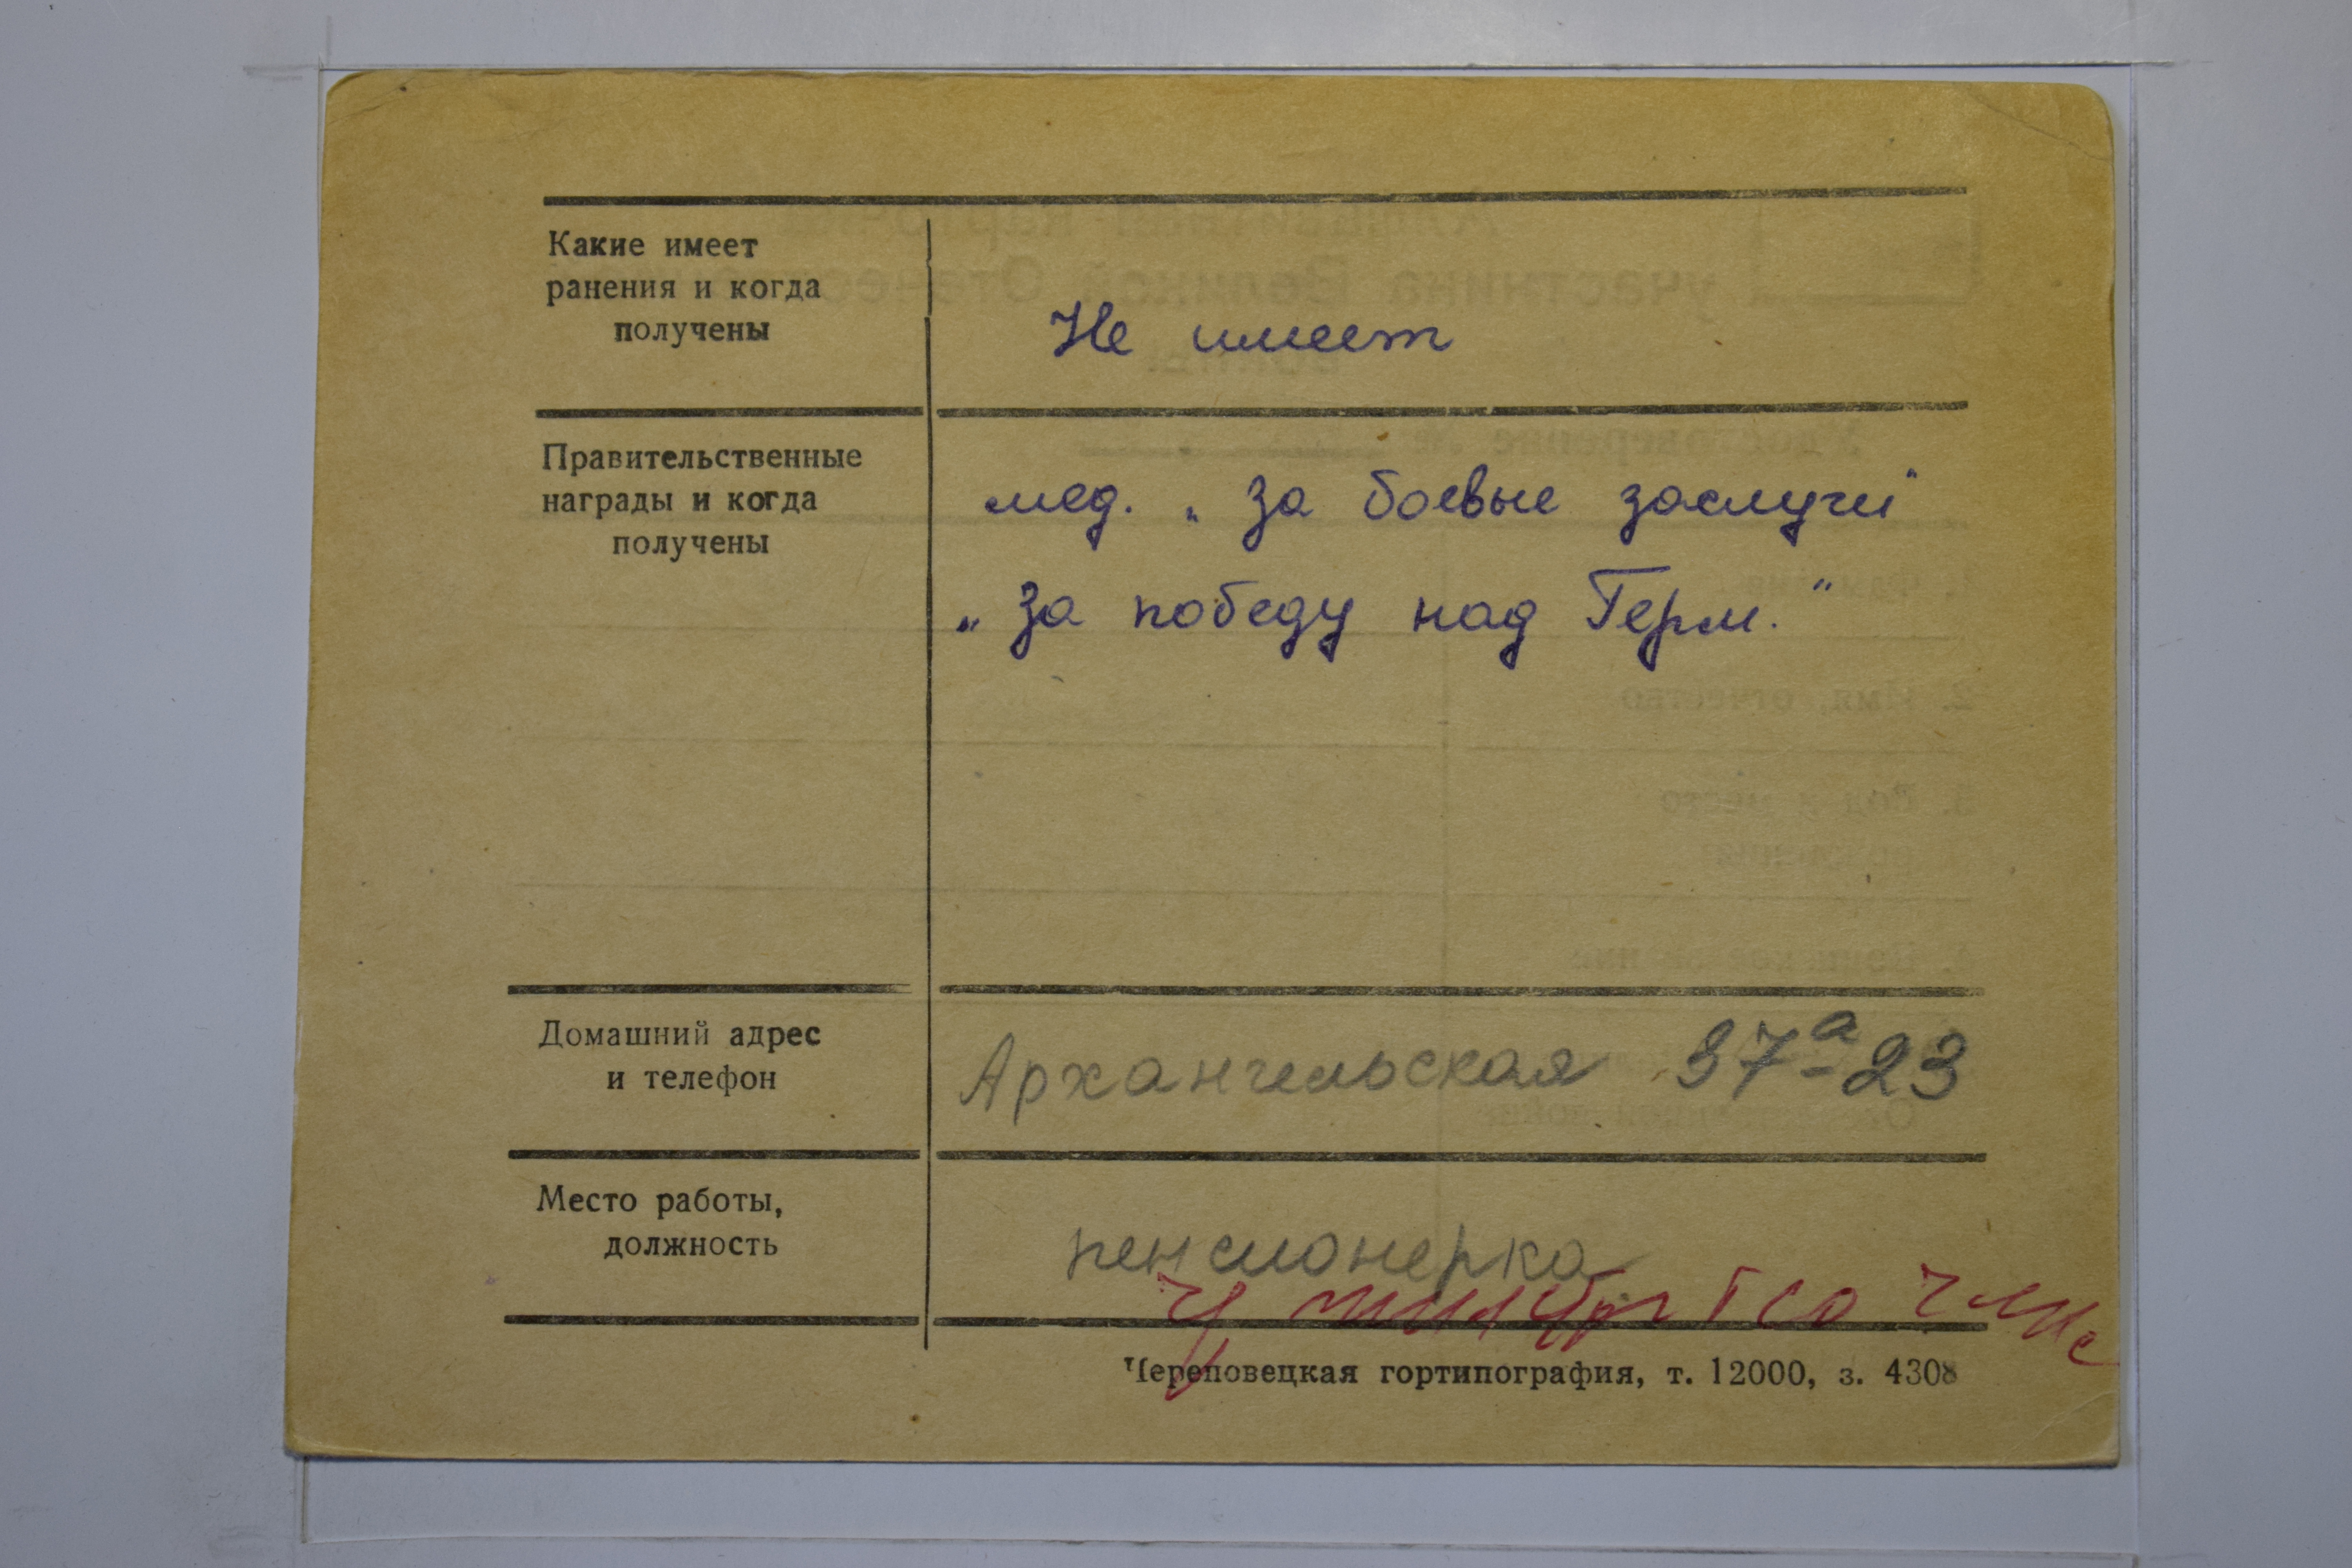 Какие имеет
ранения и когда
получены
Не имеет
Правительственные
награды и когда
получены
мед. „ За боевые заслуги"
„ За победу над Герм. "
Домашний адрес
и телефон
Архангельская 37а-23
Место работы,
должность
пенсионерка
Череповецкая гортипография, т. 12000, з. 4308